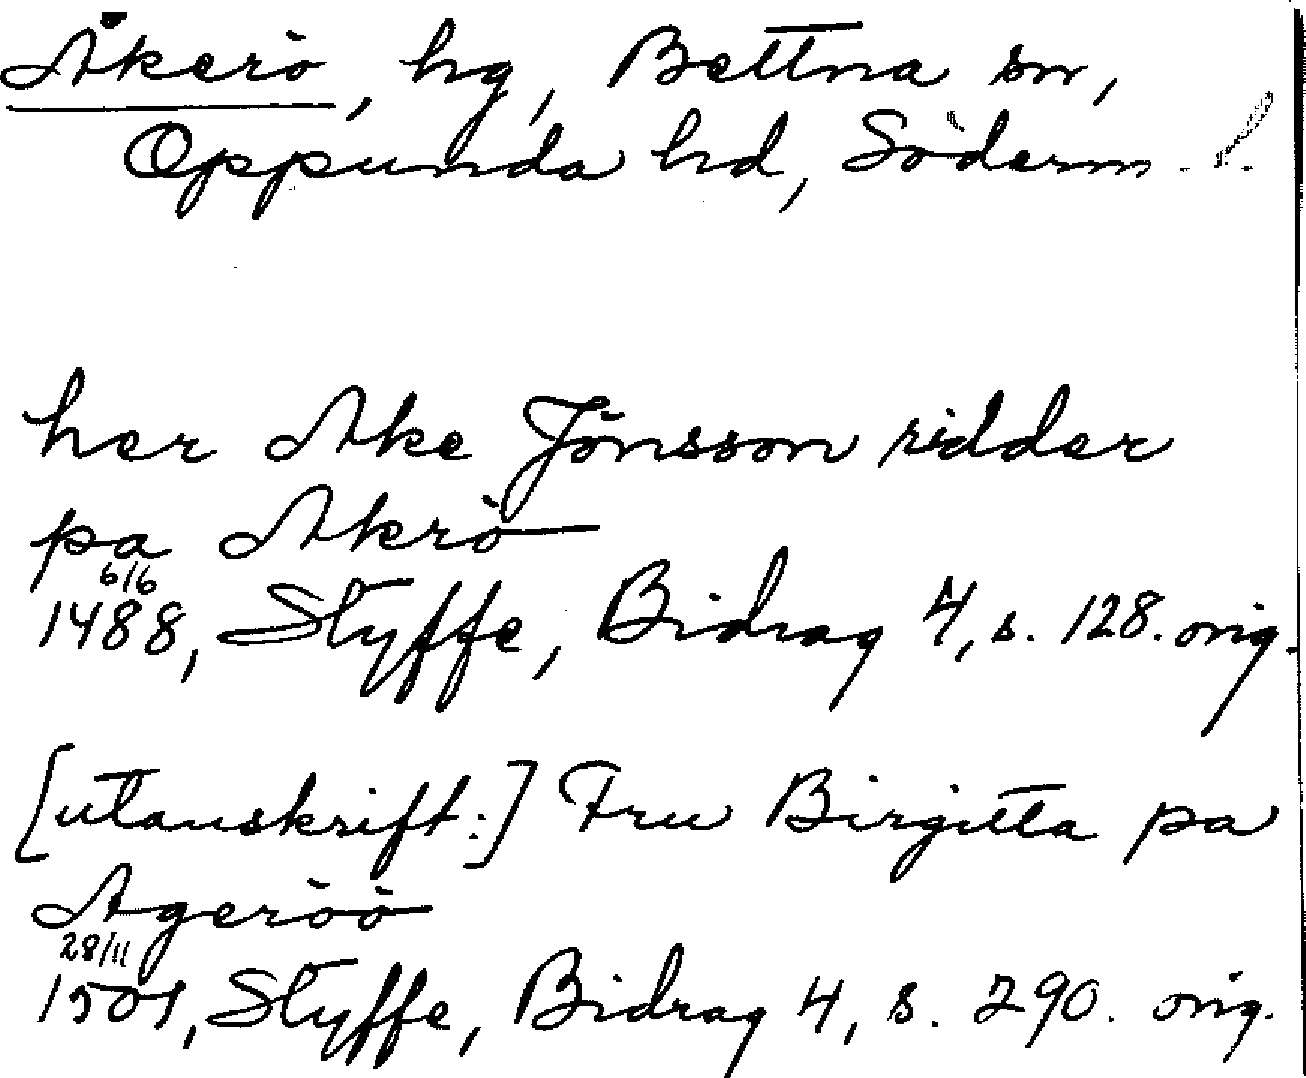 Åkerö, hg, Bettna sn,
Oppunda hd, Söderm. l.
her Ake Jönsson ridder
pa Akrö
6/6
1488, Styffe, Bidrag 4, s. 128. orig.
[utanskrift:] Fru Birgitta pa
Ageröö
28/11
1501, Styffe, Bidrag 4, s. 290. orig.